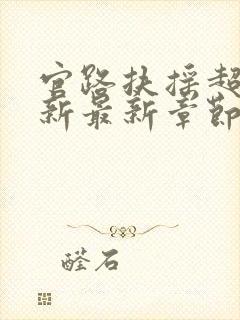 官路扶摇超
新最新章节
醛石